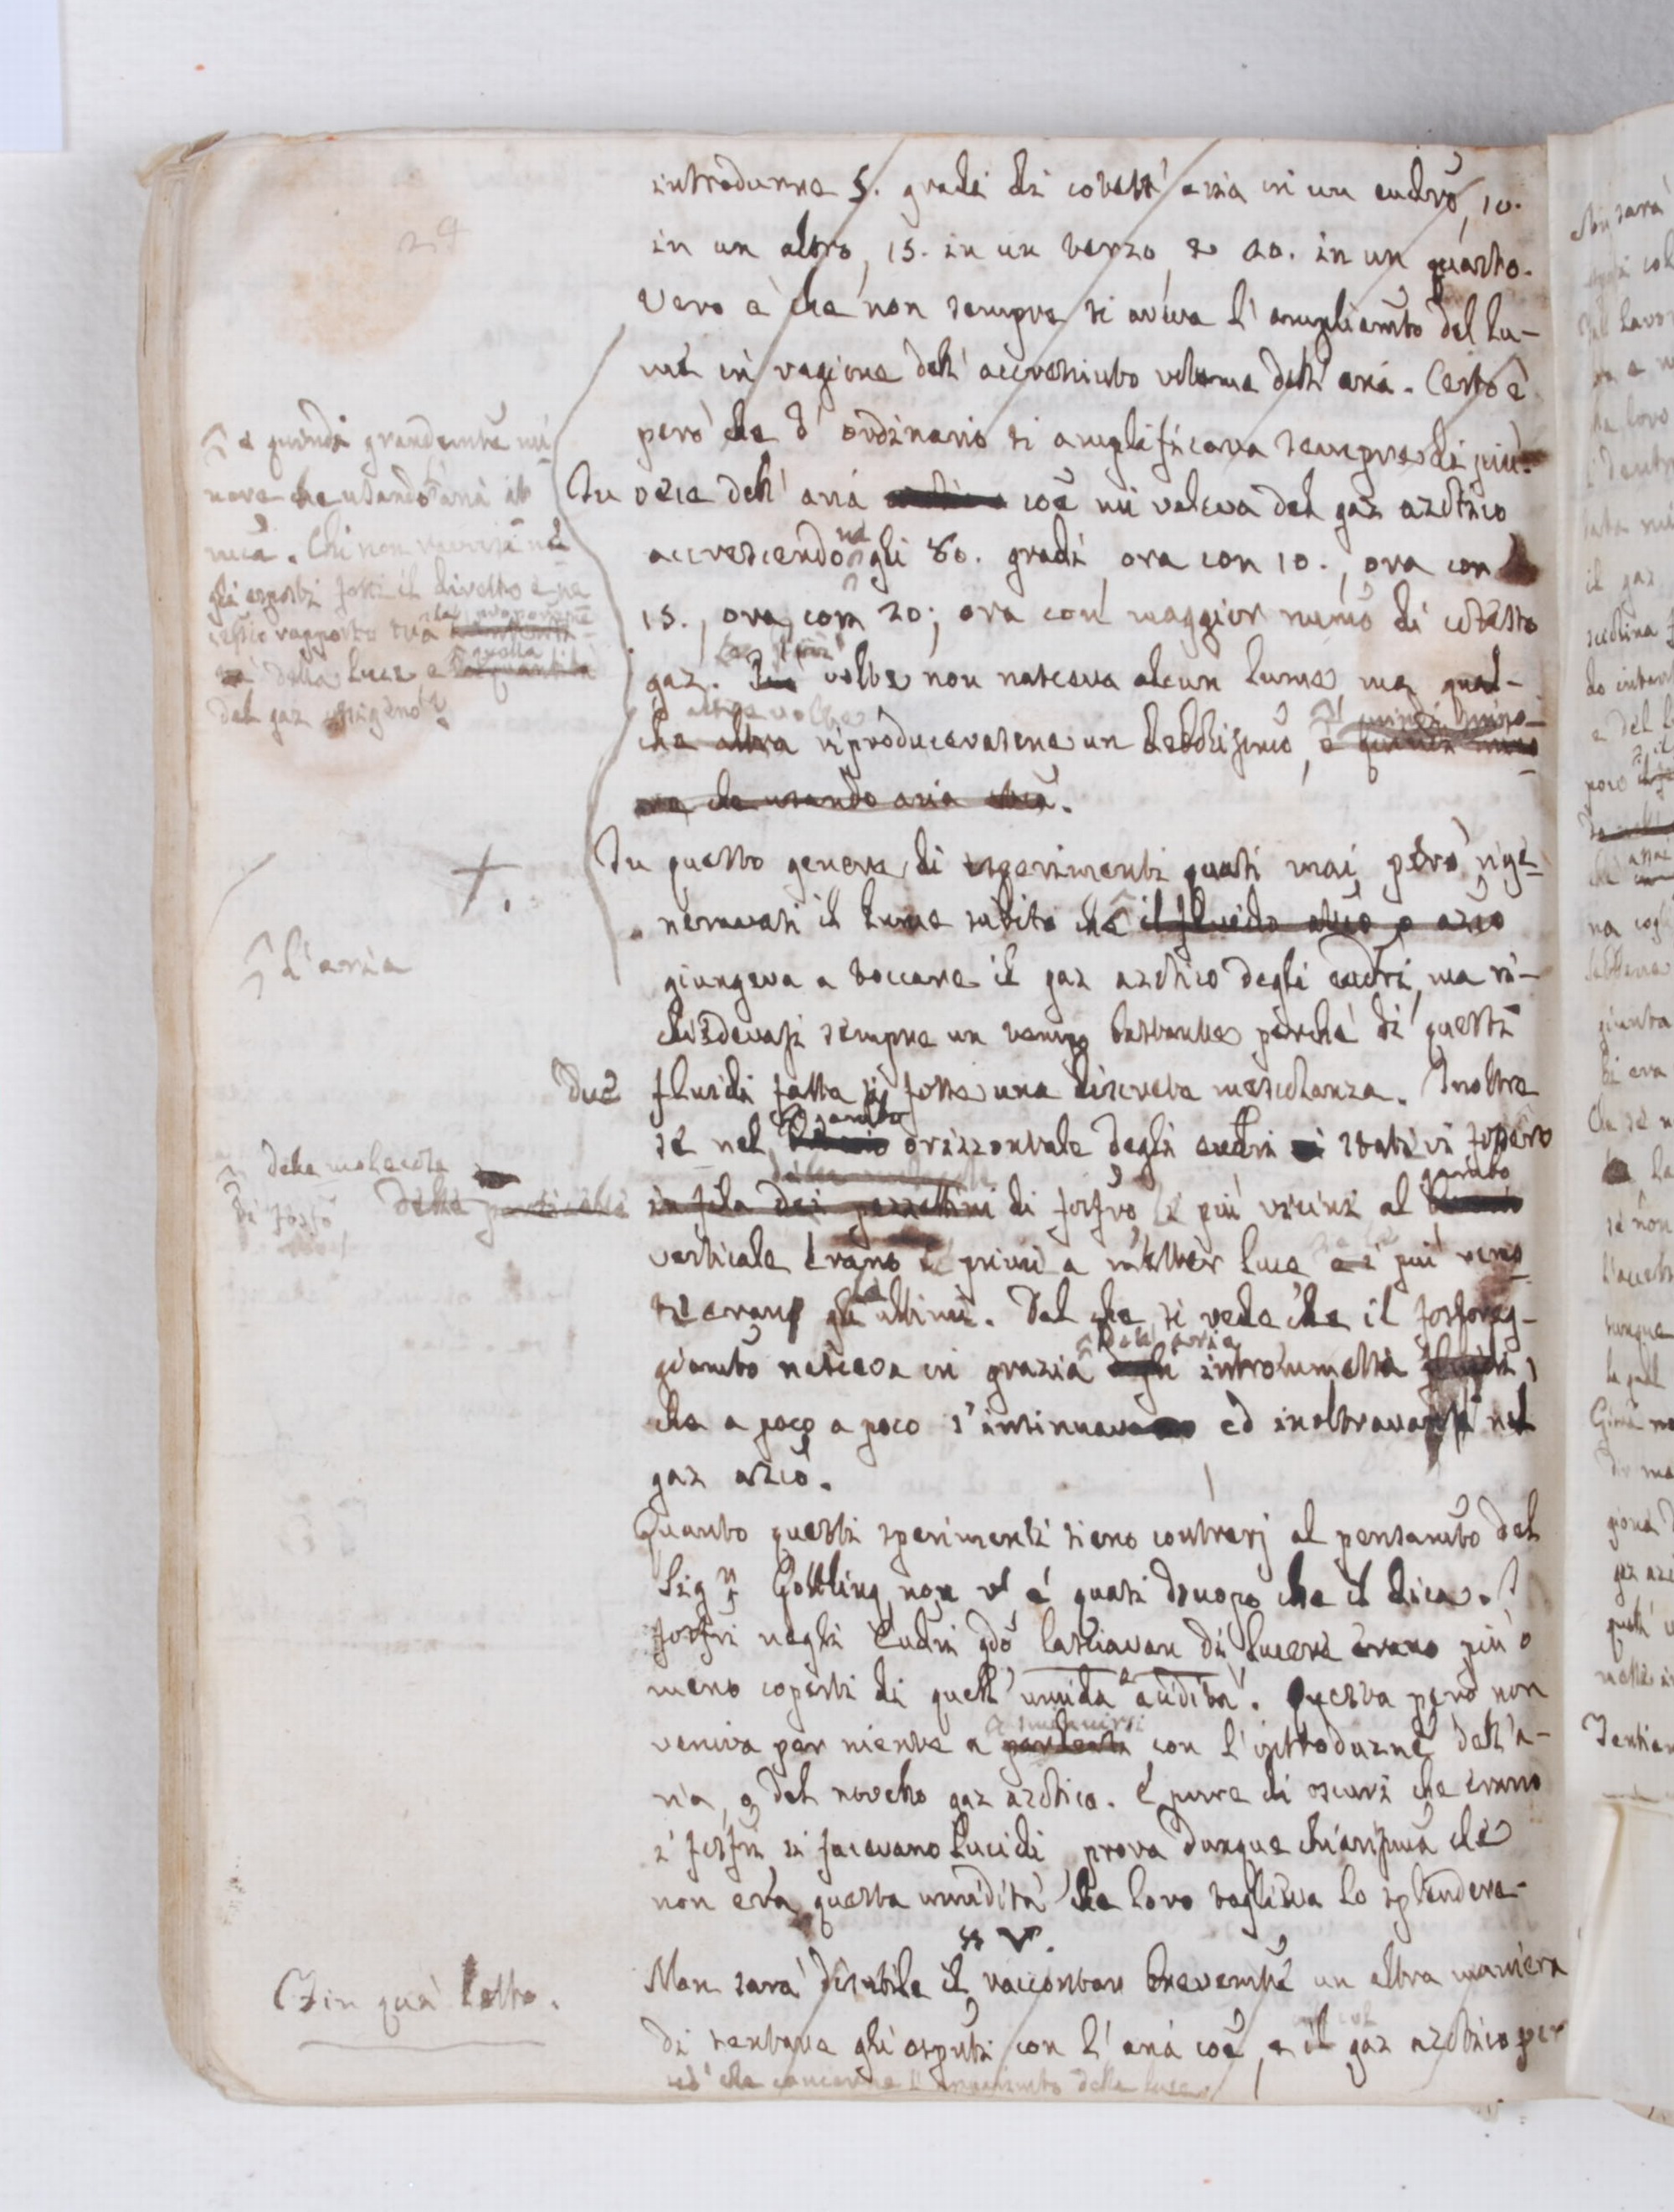 introdurne 5. gradi di cotest' aria in un eudrõ, 10.
in un altro, 15. in un terzo, e 20. in un quarto.
Vero è che non sempre si aveva l' ampliamto del lu-
me in ragione dell' accresciuto volume dell' aria. Certo è
però che d' ordinario si amplificava sempre di più.
In vece dell' aria coe mi valeva del gaz azotico
accrescendone gli 80. gradi, ora con 10., ora con
15., ora con 20; ora con maggior numo di cotesto
gaz. Le più volte non nasceva alcun lume, ma qual-
che altra riproducevasene un debolissimo, e quindi mino-
re che usando aria
In questo genere di esperimenti quasi mai però rige-
neravasi il lume subito che il fluido
giungeva a toccare il gaz azotico degli eudri, ma ri-
chiedevasi sempre un tempo bastante perché di questi
due fluidi fatta si fosse una discreta mescolanza. Inoltre
se nel gambo orizzontale degli eudri stati vi fossero
in fila dei pezzettini di fosfro, i più vicini al gambo
verticale erano i primi a metter luce e i più remo-
ti erano gli ultimi. Dal che si vede che il fosforeg-
giamto nasceva in grazia dell' aria intromessa
che a poco a poco s' insinuava ed inoltravasi nel
gaz azico.
Quanto questi sperimenti sieno contrarj al pensamto del
Sigr Gottling, non v' è quasi d'uopo che il dica. I
fosfri negli eudri qdo lasciavan di lucere erano più o
meno coperti di quell' umida acidità. Questa però non
veniva per niente a sminuirsi con l' introduzne dell' a-
ria, o del novello gaz azotico. E pure di oscuri che erano
i fosfri si facevano lucidi, prova dunque chiarissima che
non era questa umidità che loro toglieva lo splendere.
Non sarà disutile il raccontar brevemte un altra maniera
di tentare gli esposti con l' aria coe, e il gaz azotico per
ciò che concerne l' della luce
e quindi grandemte mi-
nore che usando l'aria at
mca. Chi non ravvisa ne
gli esposti fatti il diretto e ne
cessio rapporto tra la proporzne
della luce e quella
del gaz ossigeno?
l' aria
delle molecole
di fosfo delle particelle
Fin quà letto.